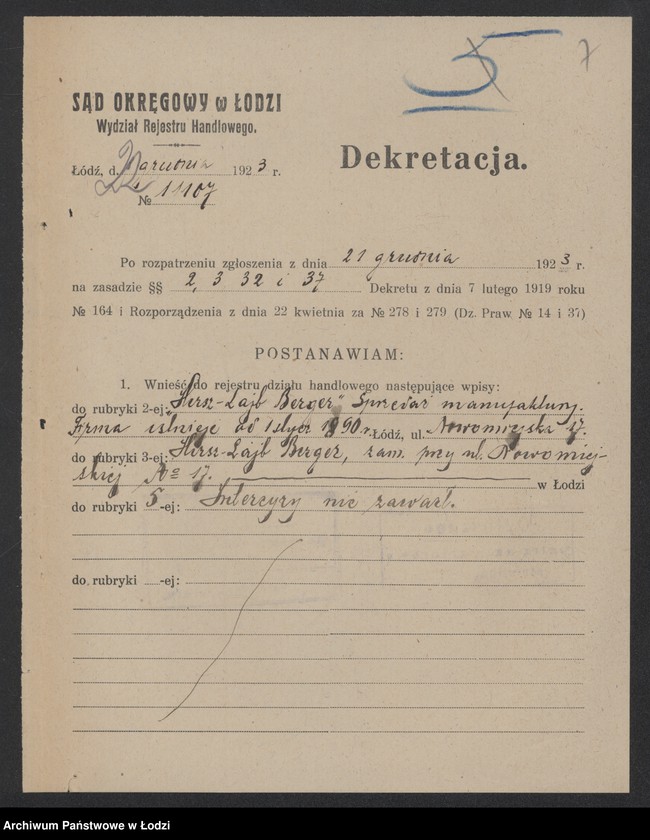 5
7
SĄD OKRĘGOWY w ŁODZI
Wydział Rejestru Handlowego.
Dekretacja.
Łódź, d. 22 grudnia 1923 r.
№ 11107
Po rozpatrzeniu zgłoszenia z dnia 21 grudnia 1923 r.
na zasadzie §§ 2, 3 32 i 37 Dekretu z dnia 7 lutego 1919 roku
№ 164 i Rozporządzenia z dnia 22 kwietnia za № 278 i 279 (Dz. Praw. № 14 i 37)
POSTANAWIAM:
1. Wnieść do rejestru działu handlowego następujące wpisy:
do rubryki 2-ej: "Hersz-Lajb Berger" Sprzedaż manufaktury.
Firma istnieje od 1 stycz 1890 r. Łódź, ul. Nowomiejska 17.
do rubryki 3-ej: Hersz-Lajb Berger, zam. przy ul. Nowomiej-
skiej № 17. w Łodzi
do rubryki 5-ej: Intercyzy nie zawarł.
do rubryki -ej:
Archiwum Państwowe w Łodzi